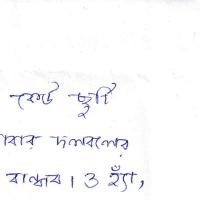 কেউ ছুটি
বাবার দলবলের
বান্ধব। ও হ্যাঁ,